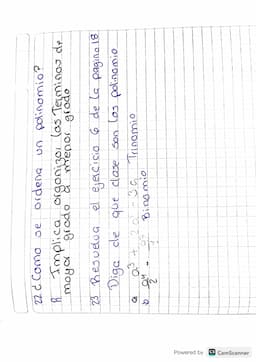 22 ¿Como se ordena un polinomio?
R Implica organizar los Terminos de
mayor grado a menor grado
23 Resuelva el ejercicio 6 de la pagina 18
Diga de que clase son los polinomio
a a³ + 2a - 3a Trinomio
b a⁴/2 - Binomio
Powered by CamScanner